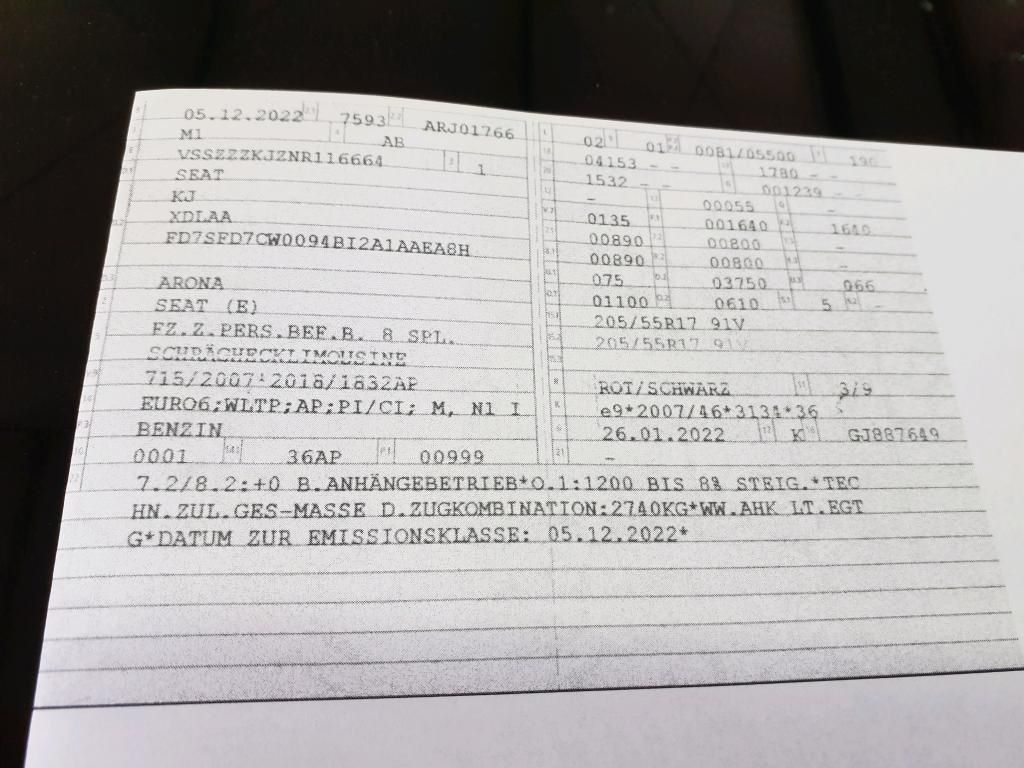 05.12.2022 7593 ARJ01766
M1 AB
VSSZZZKJZNR116664 1
SEAT
KJ
XDLAA
FD7SFD7CW0094BI2A1AAEA8H
ARONA
SEAT (E)
FZ.Z.PERS.BEF.B. 8 SPL.
SCHRÄGHECKLIMOUSINE
715/2007*2018/1832AP
EURO6;WLTP;AP;PI/CI; M, N1 I
BENZIN
0001 36AP 00999
02 01 0081/05500 190
04153 - - 1780 - -
1532 - - 001239 - -
- 00055 -
0135 001640 1640
00890 00800 -
00890 00800 -
075 03750 066
01100 0610 5 -
205/55R17 91V
205/55R17 91V
ROT/SCHWARZ 3/9
e9*2007/46*3134*36
26.01.2022 K GJ887649
-
7.2/8.2:+0 B.ANHÄNGEBETRIEB*O.1:1200 BIS 8% STEIG.*TEC
HN.ZUL.GES-MASSE D.ZUGKOMBINATION:2740KG*WW.AHK LT.EGT
G*DATUM ZUR EMISSIONSKLASSE: 05.12.2022*